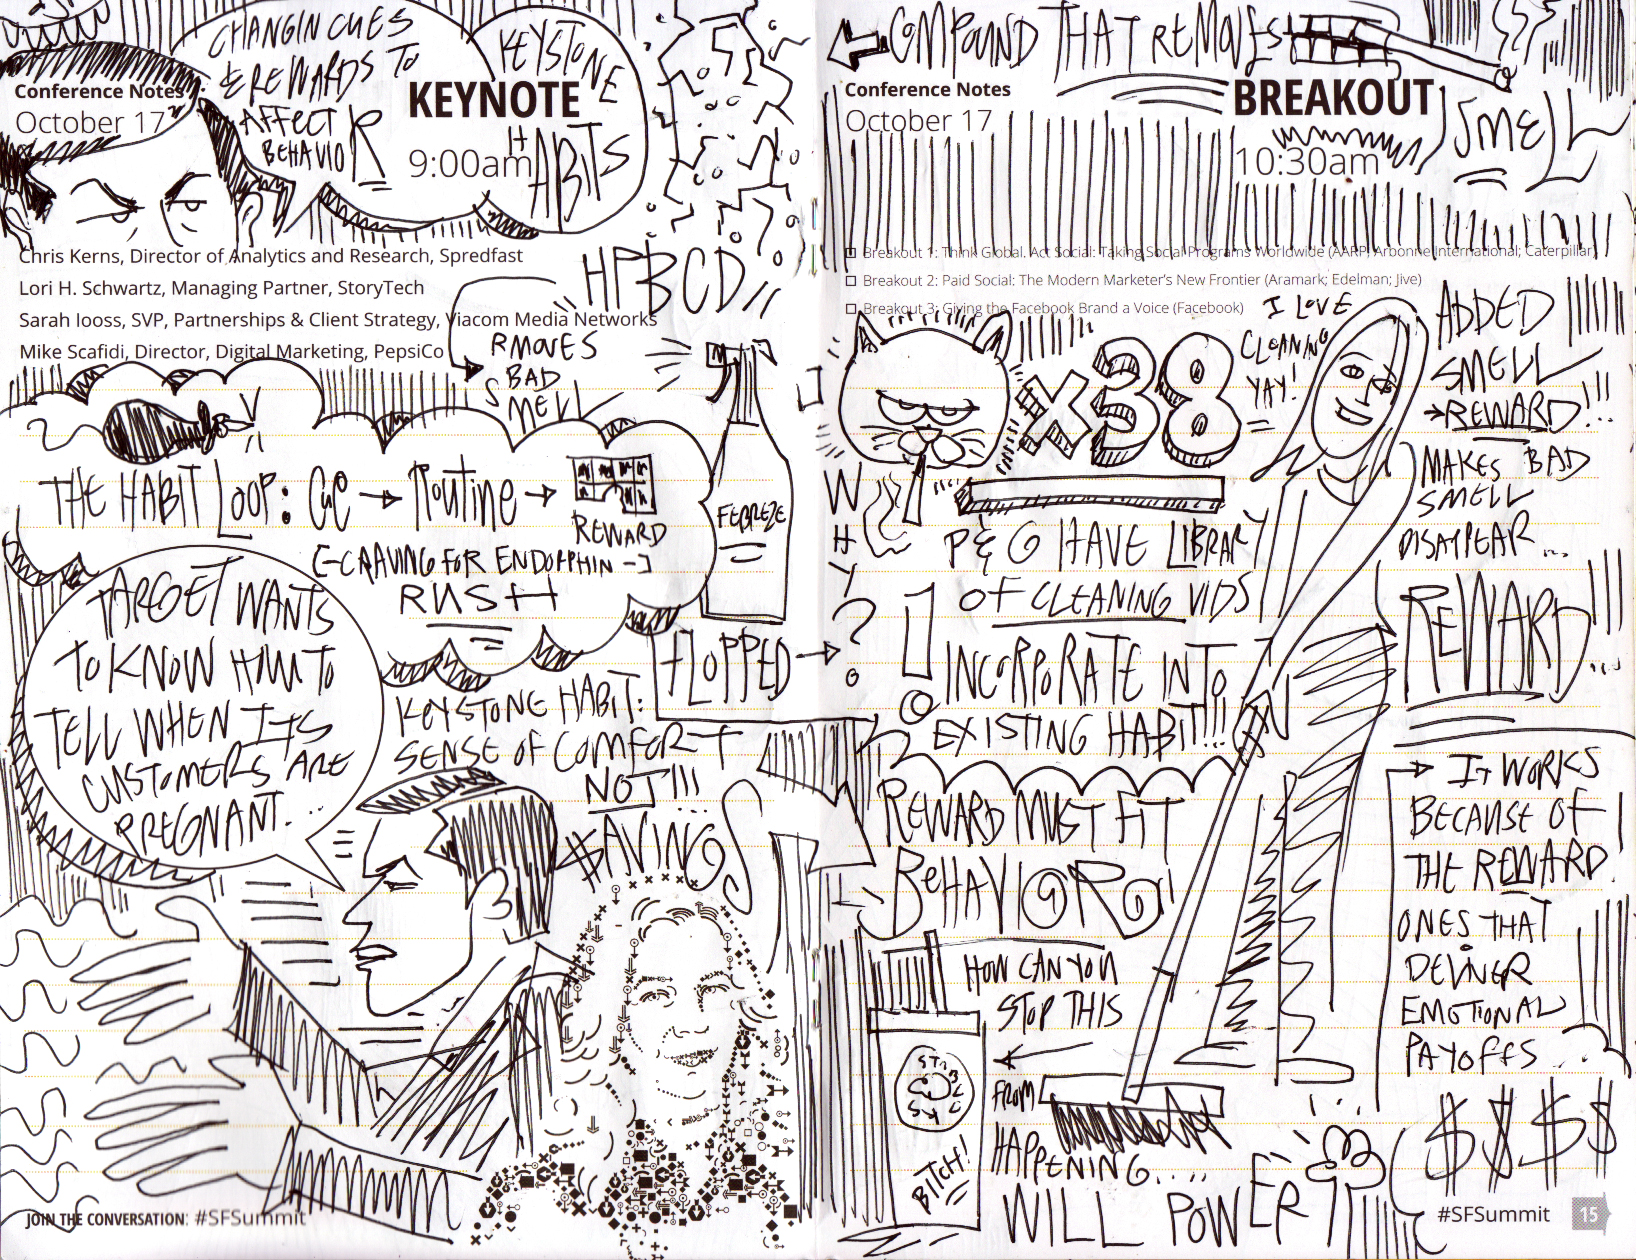 CHANGIN CUES
& REWARDS TO
AFFECT
BEHAVIOR
KEYSTONE
HABITS
Conference Notes
October 17
KEYNOTE
9:00am
Chris Kerns, Director of Analytics and Research, Spredfast
Lori H. Schwartz, Managing Partner, StoryTech
Sarah Iooss, SVP, Partnerships & Client Strategy, Viacom Media Networks
Mike Scafidi, Director, Digital Marketing, PepsiCo
HPBCD
RMOVES
BAD
SMELL
THE HABIT LOOP: CUE → ROUTINE →
REWARD
[-CRAVING FOR ENDORPHIN-]
RUSH
FEBREZE
FLOPPED →
TARGET WANTS
TO KNOW HOW TO
TELL WHEN ITS
CUSTOMERS ARE
PREGNANT...
KEYSTONE HABIT:
SENSE OF COMFORT
NOT!!!
$AVINGS
JOIN THE CONVERSATION: #SFSummit
COMPOUND THAT REMOVES
SMELL
Conference Notes
October 17
BREAKOUT
10:30am
Breakout 1: Think Global. Act Social: Taking Social Programs Worldwide (AARP; Arbonne International; Caterpillar)
Breakout 2: Paid Social: The Modern Marketer's New Frontier (Aramark; Edelman; Jive)
Breakout 3: Giving the Facebook Brand a Voice (Facebook)
x38
I LOVE
CLEANING
YAY!
ADDED
SMELL
→REWARD!!!
MAKES BAD
SMELL
DISAPPEAR...
REWARD!!!
WHY?
P&G HAVE LIBRARY
OF CLEANING VIDS
!
INCORPORATE INTO
EXISTING HABIT!!!
REWARD MUST FIT
BEHAVIOR!
→ IT WORKS
BECAUSE OF
THE REWARD!
ONES THAT
DELIVER
EMOTIONAL
PAYOFFS
$ $ $ $
HOW CAN YOU
STOP THIS
FROM
HAPPENING.....
WILL POWER
BITCH!
#SFSummit
15